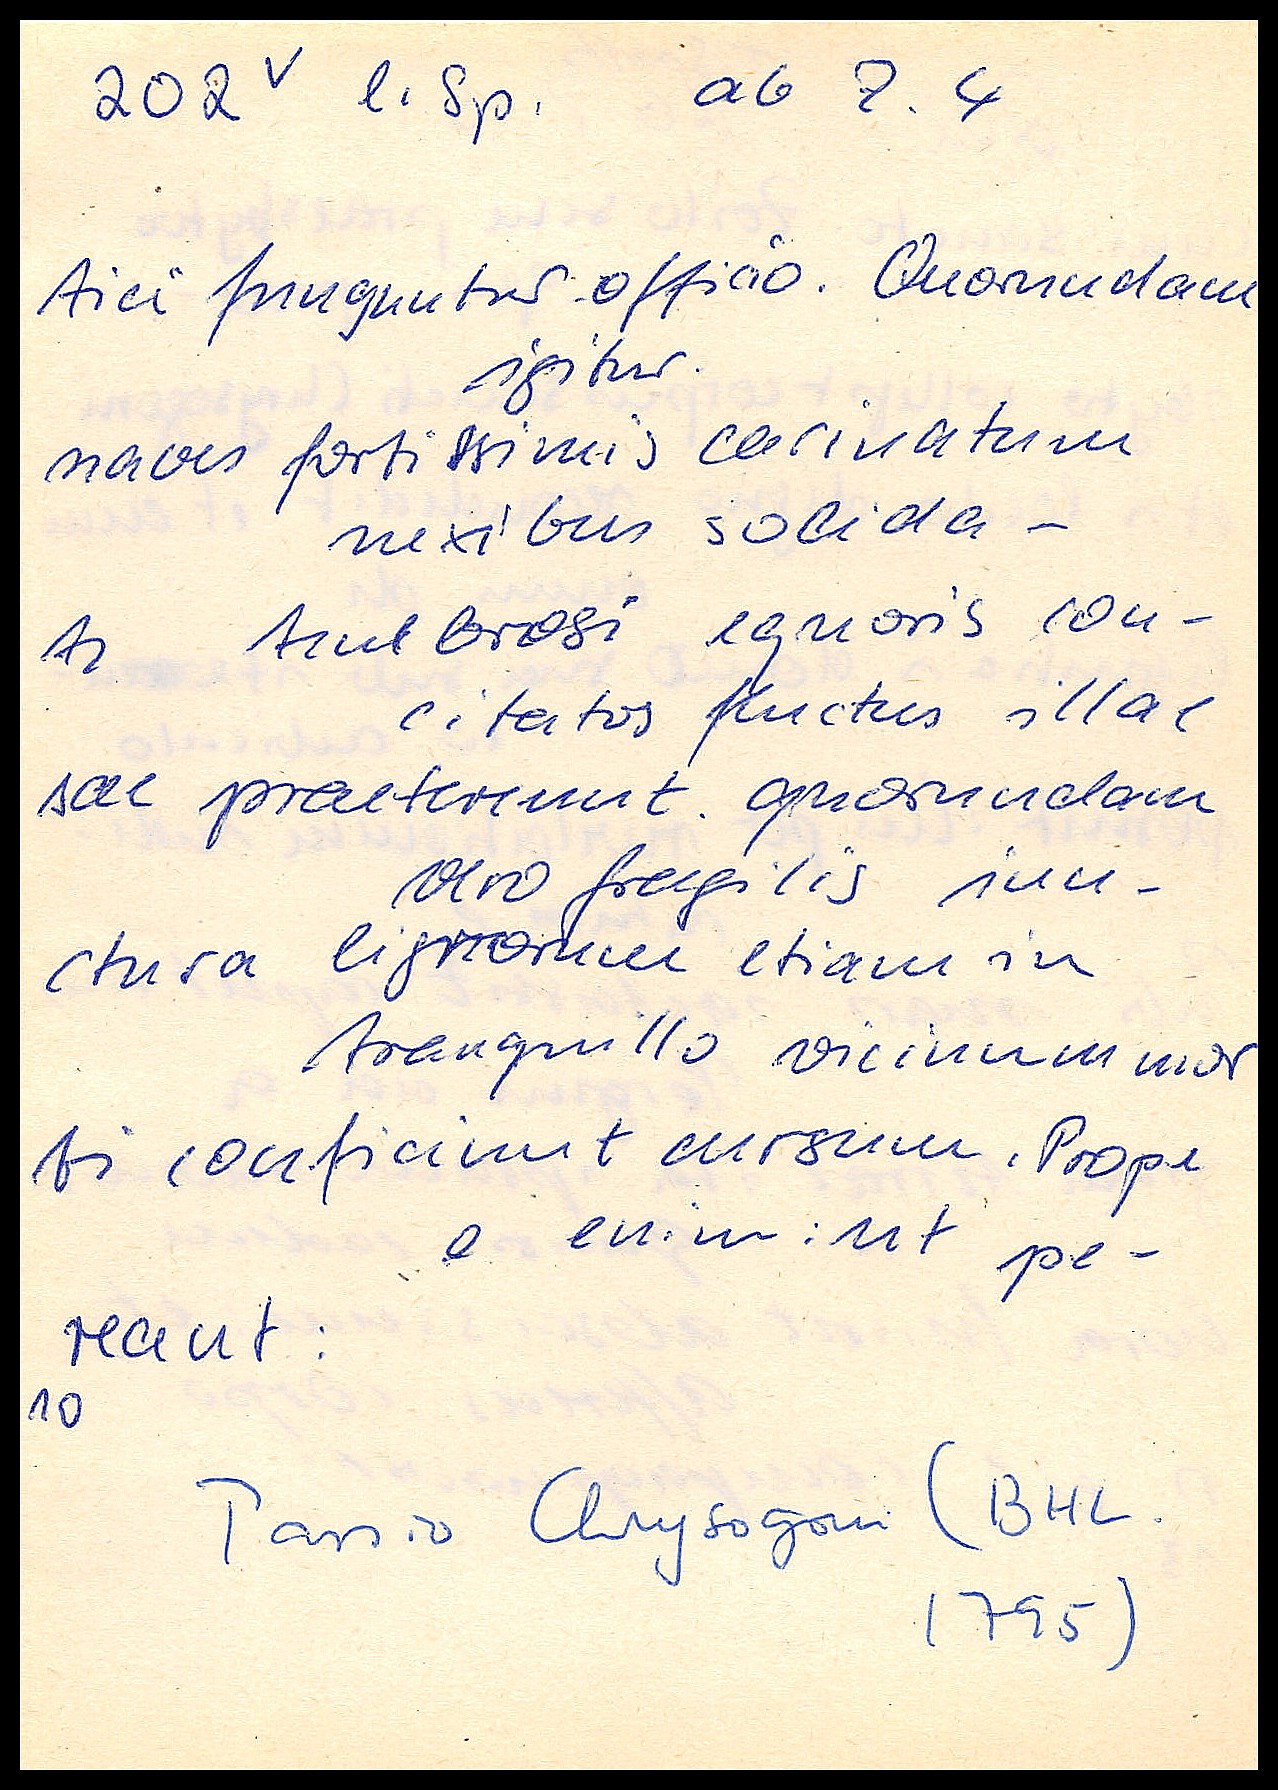 202v l. Sp. ab Z. 4
tici funguntur officio. Quorundam
igitur.
naves fortissimis carinatum
nexibus solida-
ti tumbrosi equoris con-
citatos fluctus illae
sae praetereunt. quorundam
vero fragilis iun-
ctura lignorum etiam in
tranquillo vicinum mor
ti conficiunt cursum. Prope
e enim: ut pe-
reant:
10
Passio Chrysogoni (BHL.
1795)